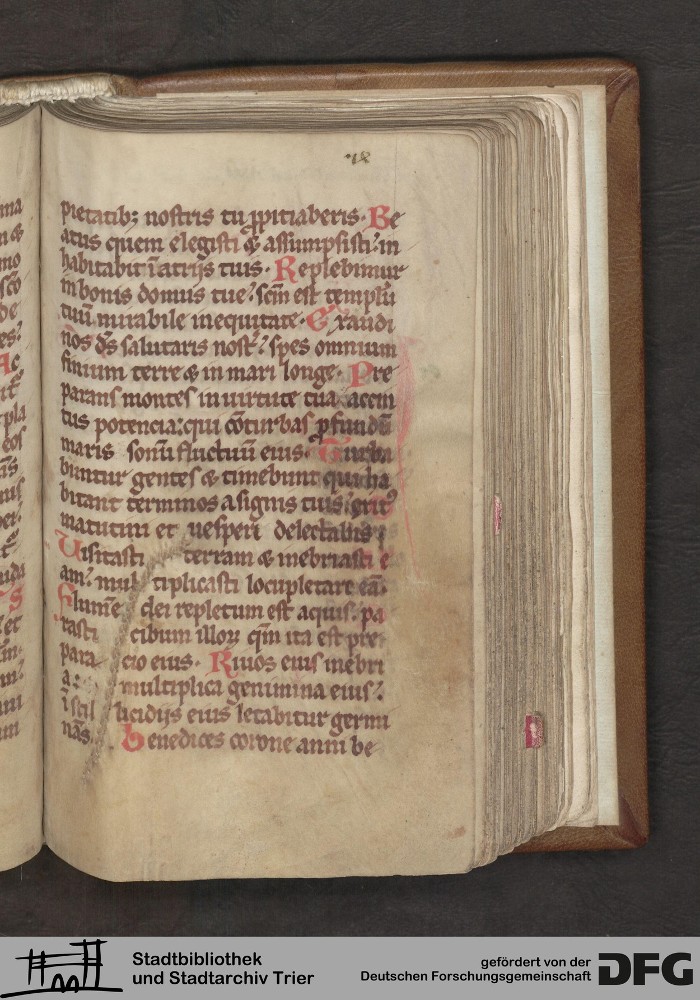 pietatib; nostris tu ꝓpitiaberis· Be
atus quem elegisti & assumpsisti: in
habitabit ī atrijs tuis· Replebimur
in bonis domus tue: scm̄ est templū
tuū mirabile in equitate· Exaudi
nos ds̄ salutaris nostr̄: spes omnium
finium terre & in mari longe· Pre
parans montes in uirtute tua accin
tus potencia: qui cōturbas ꝓfundū
maris sonū fluctuū eius· Turba
buntur gentes & timebunt qui ha
bitant terminos a signis tuis:
matutini et uesperi delectabis
Uisitasti terram & inebriasti e
am: mul tiplicasti locupletare eā·
Flumē dei repletum est aquis: pa
rasti cibum illoꝝ qm̄ ita est pre
para cio eius· Riuos eius inebri
a: multiplica genimina eius:
ī stil licidijs eius letabitur germi
nās· Benedices corone anni be
Stadtbibliothek
und Stadtarchiv Trier
gefördert von der
Deutschen Forschungsgemeinschaft
DFG